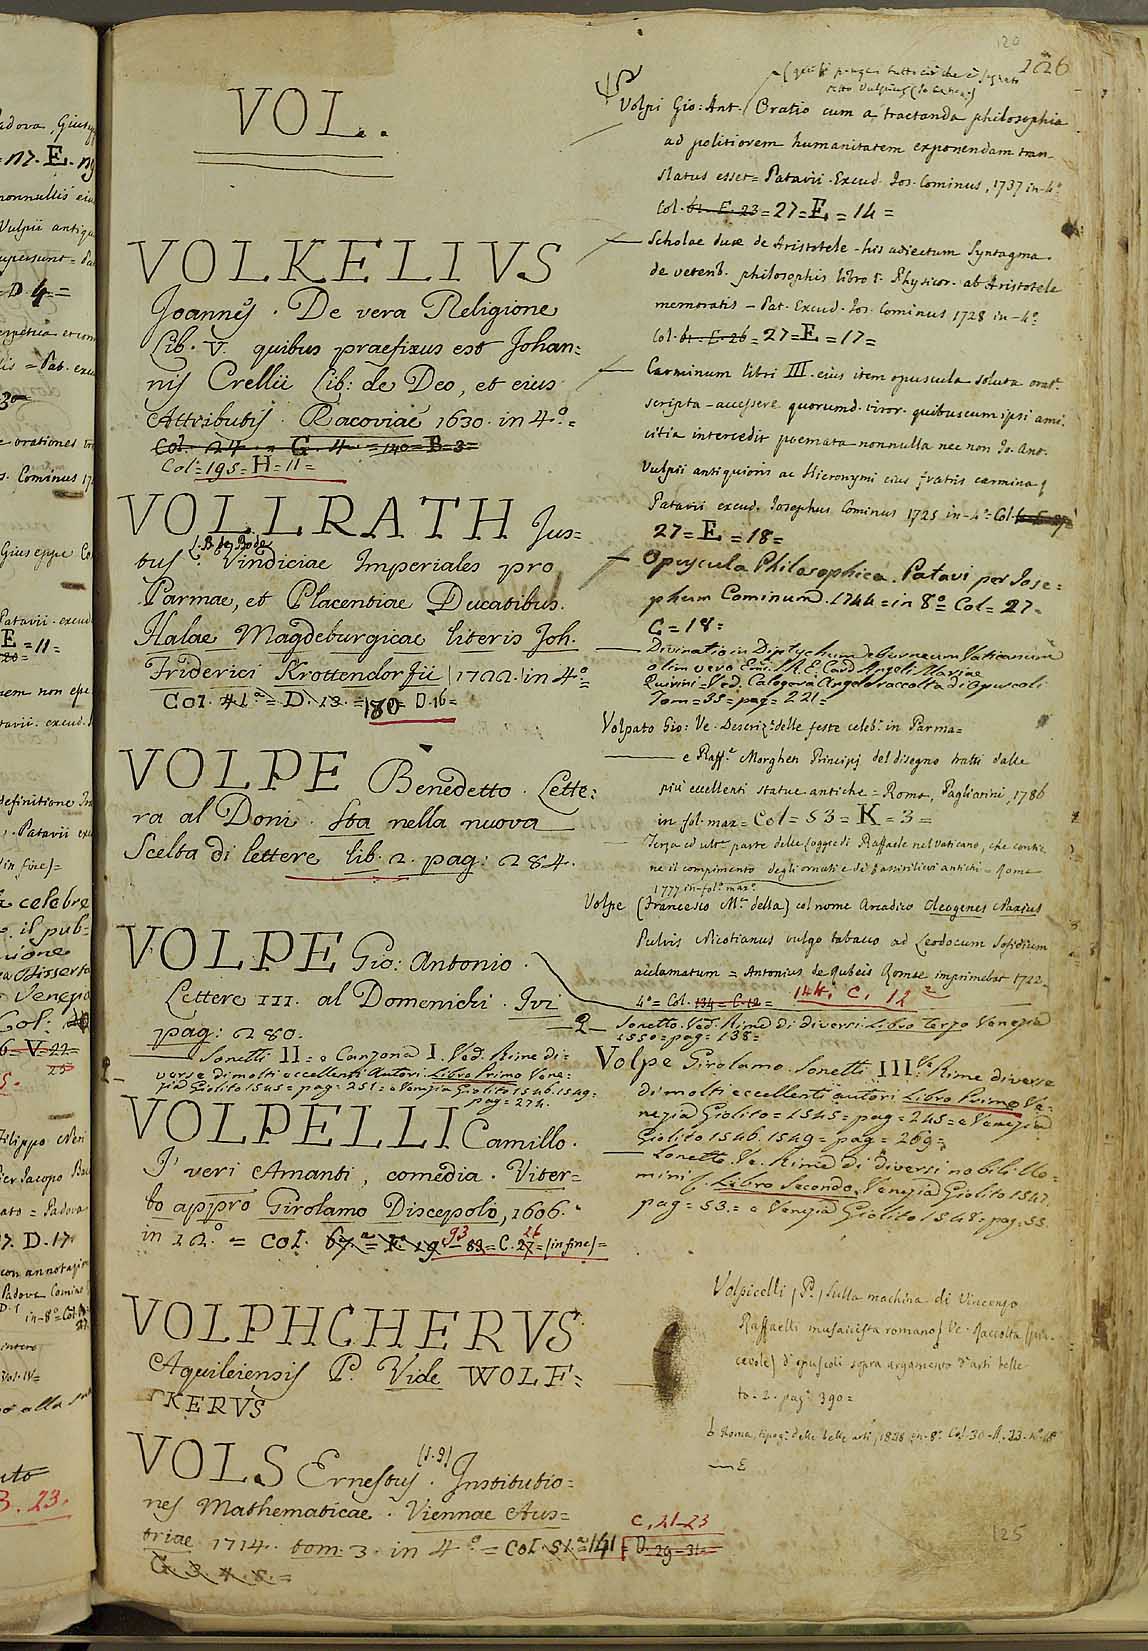 adova, Giusep
=17. E. 19
nonnullis eiu
Vulpii antiqu
= D. 4 =
e orationes
s. Cominus 17
Giuseppe Co
Patavii . excud
E = 11 =
tavii . excud. J
definitione
, Patavii exc
in fine)=
a celebre
o. il pub=
Venezia
Col:
6. V. 22=
Filippo Neri
Pier Jacopo
ato = Padova
7. D. 17.
con annotazion
Padova Comino
in - 8º = Col.
Vol. IV=
3. 23.
VOL..
VOLKELIVS
Joannes . De vera Religione
Lib. V. quibus praefixus est Johan=
nis Crellii Lib: de Deo, et eius
Attributis . Racoviae 1630. in 4º =
Col. 124 = G. 4 = 140 = B = 3 =
Col = 195 = H = 11 =
VOLLRATH Jus=
L. B. de Bode
tus . Vindiciae Imperiales pro
Parmae, et Placentiae Ducatibus.
Halae Magdeburgicae literis Joh.
Friderici Krottendorfii (1722.) in 4º =
Col. 41ª = D. 13. = 180 = D. 16 =
VOLPE Benedetto . Lette:
ra al Doni . Sta nella nuova
Scelta di lettere lib. 2. pag: 284.
VOLPE Gio: Antonio .
Lettere III. al Domenichi . Ivi
pag: 280.
Sonetti II = e Canzona I. Ved. Rime di=
verse di molti eccellenti Autori Libro Primo Vene=
zia Giolito 1545 = pag = 251 = e Venezia Giolito 1546. 1549=
pag = 274.
VOLPELLI Camillo .
I' veri Amanti, comedia . Viter=
bo appro Girolamo Discepolo, 1606.
in 12º = Col. 67ª = F. 19 93 - 83 = C. 27 26 = (in fine) =
VOLPHCHERVS
Aquileiensis P. Vide WOLF=
CKERVS
VOLS Ernestus . (S. J.) Institutio=
nes Mathematicae . Viennae Aus=
triae 1714. tom. 3. in 4º = Col. 51ª = 141 = D. 29 - 31 =
C. 21-23
G. 3. 4. 5. =
120
126
Volpi Gio: Ant. Oratio cum a tractanda philosophia
ad politiorem humanitatem exponendam tran
slatus esset = Patavii . Excud. Jos. Cominus, 1737 in - 4º
Col. 61. E. 23 = 27 = E = 14 =
Scholae duae de Aristotele - his adiectum Syntagma
de veterib. philosophis libro I. Physicor. ab Aristotele
memoratis - Pat. Excud. Jos: Cominus 1728 in - 4º
Col. 61. E. 26 = 27 = E = 17 =
Carminum libri III. eius item opuscula soluta orat.
scripta - accessere quorumd. viror. quibuscum ipsi ami
citia intercedit poemata nonnulla nec non Jo. Ant.
Vulpii antiquioris ac Hieronymi eius fratris carmina
Patavii excud. Josephus Cominus 1725 in - 4º = Col.
27 = E = 18 =
Opuscula Philosophica. Patavi per Jose=
phum Cominum. 1744 = in 8º = Col = 27 =
G = 18 =
Divinatio in Diptychum eburneum Vaticanum
olim vero Emi. S. R. E. Card. Angeli Mariae
Quirini = Ved. Calogerà Angelo raccolta di Opuscoli
Tom = 35 = pag = 221 =
Volpato Gio: Ve. Descriz. delle feste celeb. in Parma =
e Raff. Morghen Principj del disegno tratti dalle
più eccellenti statue antiche = Roma, Pagliarini, 1786
in fol. max = Col = 53 = K = 3 =
Terza ed ult. parte delle Logge di Raffaele nel Vaticano, che contie
ne il compimento degli ornati e de' bassirilievi antichi - Roma
1777 in fol. max.
Volpe (Francesco M. della) col nome Arcadico Cleogenes Naxius
Pulvis Nicotianus vulgo tabacco ad Leodocum Sofidium
acclamatum = Antonius de Rubeis Romae imprimebat 1722
4º = Col. 134 = C. 12 = 144. C. 12
2 Sonetto. Ved. Rime di diversi Libro Terzo Venezia
1550 = pag = 138 =
Volpe Girolamo. Sonetti III. Ve. Rime diverse
di molti eccellenti autori Libro Primo Ve=
nezia Giolito = 1545 = pag = 245 = e Venezia
Giolito 1546. 1549 = pag = 269 =
Sonetto. Ve. Rime di diversi nobili Uo=
mini. Libro Secondo. Venezia Giolito 1547.
pag = 53. = e Venezia Giolito 1548. pag. 53.
Volpicelli (P.) Sulla machina di Vincenzo
Raffaelli musaicista romano) Ve. Raccolta (pia=
cevole) d'opuscoli sopra argomento d'arti belle
to. 2. pag. 390 =
Roma, tipog. delle belle arti, 1838 in - 8º Col. 30 - A. 23. nº 18
125